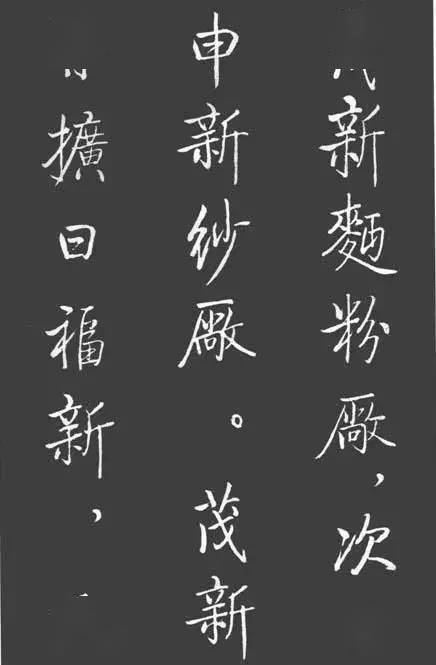 新麵粉廠,次
申新紗廠。茂新
擴曰福新,